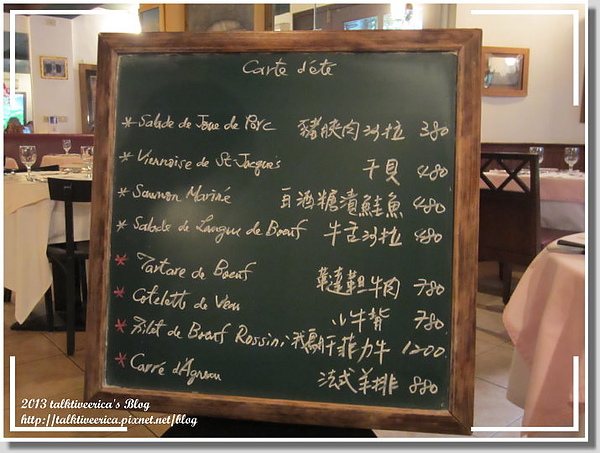 Carte d'été
* Salade de Joue de Porc 豬頰肉沙拉 380
* Viennoise de St-Jacques 干貝 480
* Saumon Mariné 白酒糖漬鮭魚 480
* Salade de Langue de Boeuf 牛舌沙拉 480
* Tartare de Boeuf 韃靼牛肉 780
* Cotelette de Veau 小牛背 780
* Filet de Boeuf Rossini 鵝肝菲力牛 1200
* Carré d'Agneau 法式羊排 880
2013 talktiveerica's Blog
http://talktiveerica.pixnet.net/blog